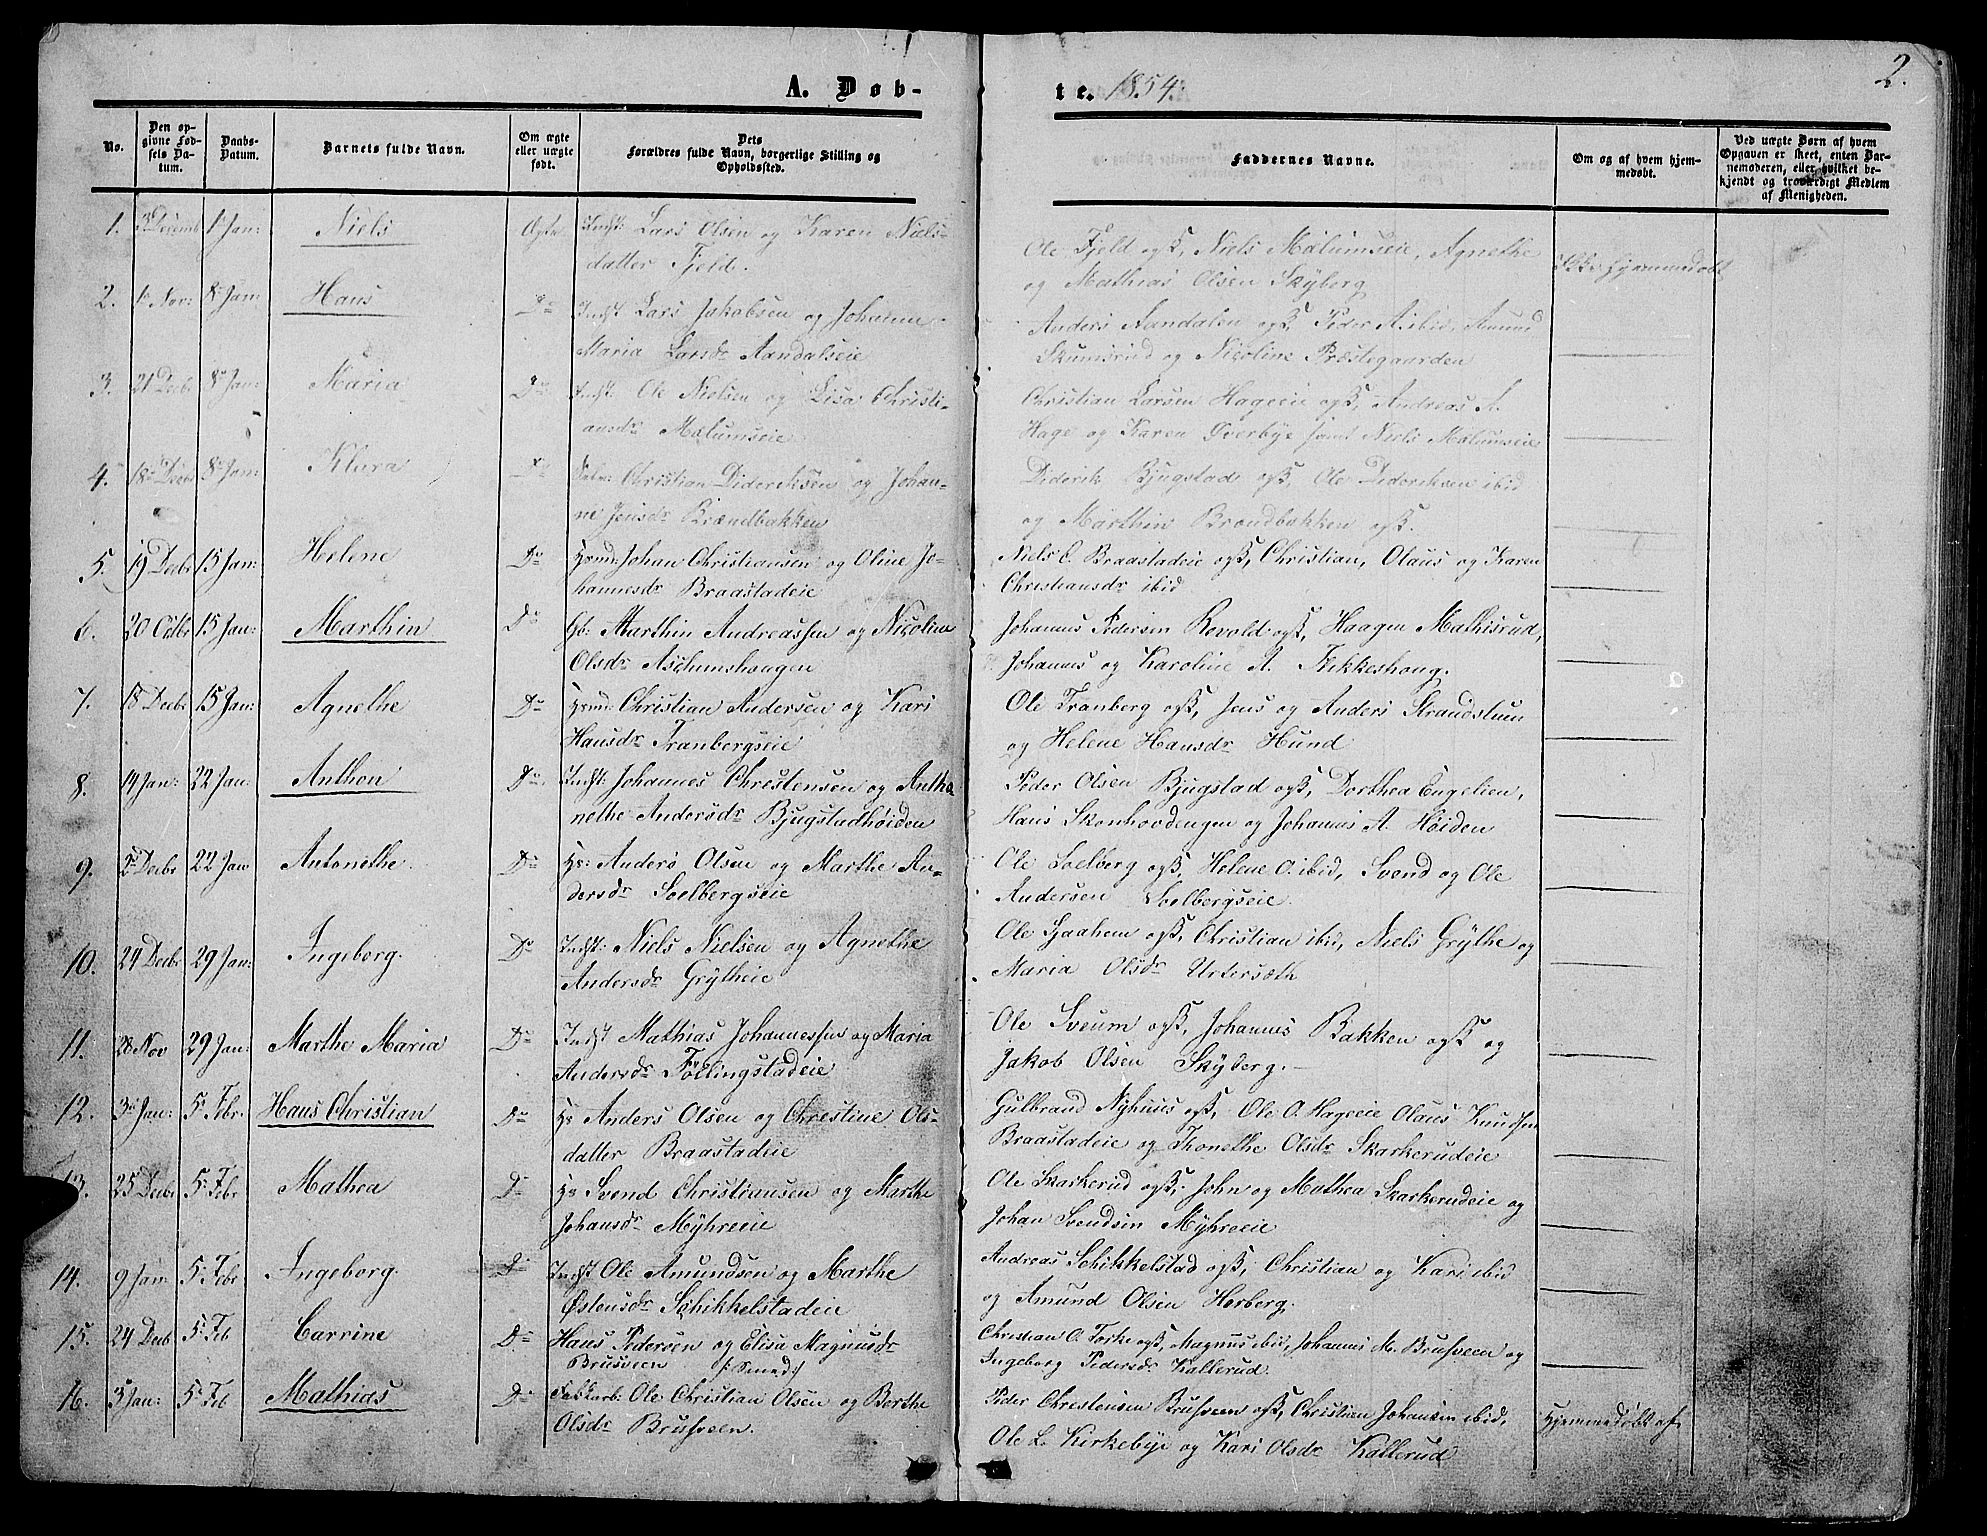 2.
A. Døb-
te. 1854.
No.
Den op-
givne Fød-
sels Da-
tum.
Daabs-
Datum.
Barnets fulde Navn.
Om ægte
eller uægte
født.
Dets
Forældres fulde Navn, borgerlige Stilling og
Opholdssted.
Faddernes Navne.
Om og af hvem hjem-
medøbt.
Ved uægte Børn af hvem
Opgaven er skeet, enten Bar-
nemoderen, eller hvilket be-
kjendt og troværdigt Medlem
af Menigheden.
1. 3 Decemb 1 Jan: Niels Ægte Indst: Lars Olsen og Karen Niels-
datter Fjeld.
Ole Fjeld ogß, Niels Mælumseie, Agnethe
og Mathias Olsen Skyberg
Ikke hjemmedøbt
2. 1 Nov: 8 Jan: Hans Do Indst Lars Jakobsen og Johanne
Maria Larsdr Aandalseie
Anders Aandalen ogß, Peder A. ibid, Amund
Skumsrud og Nicoline Præstegaarden
3. 21 Decbr 8 Jan: Maria Do Indst: Ole Nielsen og Lisa Christi-
ansdr Mælumseie
Christian Larsen Hageeie ogß, Andreas A.
Hage og Karen Øverbye samt Niels Mælumseie
4. 18 Decbr 8 Jan: Klara Do Christian Dideriksen og Johan-
ne Jensdr Brændbakken
Diderik Bjugstad ogß, Ole Dideriksen ibid
og Marthin Brændbakken ogß.
5. 19 Decbr 15 Jan: Helene Do Hsmd: Johan Christiansen og Oline Jo-
hannesdr Braastadeie
Niels C. Braastadeie ogß, Christian, Olaus og Karen
Christiansdr ibid
6. 20 Octbr 15 Jan: Marthin Do Gb: Marthin Andreassen og Nicoline
Olsdr Aschumshaugen
Johannes Pedersen Revold ogß, Haagen Mathisrud,
Johannes og Karoline A. Kikkeshoug.
7. 18 Decbr 15 Jan: Agnethe Do Hsmd: Christian Andersen og Kari
Hansdr Tranbergseie
Ole Tranberg ogß, Jens og Anders Strandstuen
og Helene Hansdr Hund
8. 14 Jan: 22 Jan: Anthon Do Indst: Johannes Christensen og Antho
nethe Andersdr Bjugstadhøiden
Peder Olsen Bjugstad ogß, Dorthea Engelien,
Hans Skonhovdengen og Johannes A. Høiden
9. 2 Decbr 22 Jan Antonethe Do Hs: Anders Olsen og Marthe An-
dersdr Soelbergseie
Ole Soelberg ogß, Helene O. ibid, Svend og Ole
Andersen Soelbergseie.
10. 24 Decbr 29 Jan: Ingeborg. Do Indst: Niels Nielsen og Agnethe
Andersdr Grytheie
Ole Sjaahem ogß, Christian ibid, Niels Grythe og
Maria Olsdr Urtersæth
11. 28 Nov 29 Jan: Marthe Maria Do Indst Mathias Johannessen og Maria
Andersdr Föllingstadeie
Ole Sveum ogß, Johannes Bakken ogß og
Jakob Olsen Skyberg.
12. 3 Jan: 5 Febr. Hans Christian Do Hs Anders Olsen og Christine Ols-
datter Braastadeie
Gulbrand Nyhuus ogß, Ole O. Hageeie Olaus Knudsen
Braastadeie og Thonethe Olsdr Skarkerudeie
13. 25 Decbr 5 Febr Mathea D Hs Svend Christiansen og Marthe
Johansdr Myhreeie
Ole Skarkerud ogß, John og Mathea Skarkerudeie og
Johan Svendsen Myhreeie
14. 9 Jan 5 Febr Ingeborg. D Indst Ole Amundsen og Marthe
Østensdr Schikkelstadeie
Andreas Schikkelstad ogß, Christian og Kari ibid
og Amund Olsen Horberg.
15. 24 Decbr 5 Feb Carrine Do Hans Pedersen og Elisa Magnusdr
Brusveen
Christian O. Torke ogß, Magnus ibid, Johannes M. Brusveen og
Ingeborg Pedersdr Kallerud.
16. 3 Jan: 5 Feb Mathias D Ole Christian Olsen og Berthe
Olsdr Brusveen.
Peder Christensen Brusveen ogß, Christian Johansen ibid,
Ole L. Kirkebye og Kari Olsdr Kallerud
Hjemmedøbt af